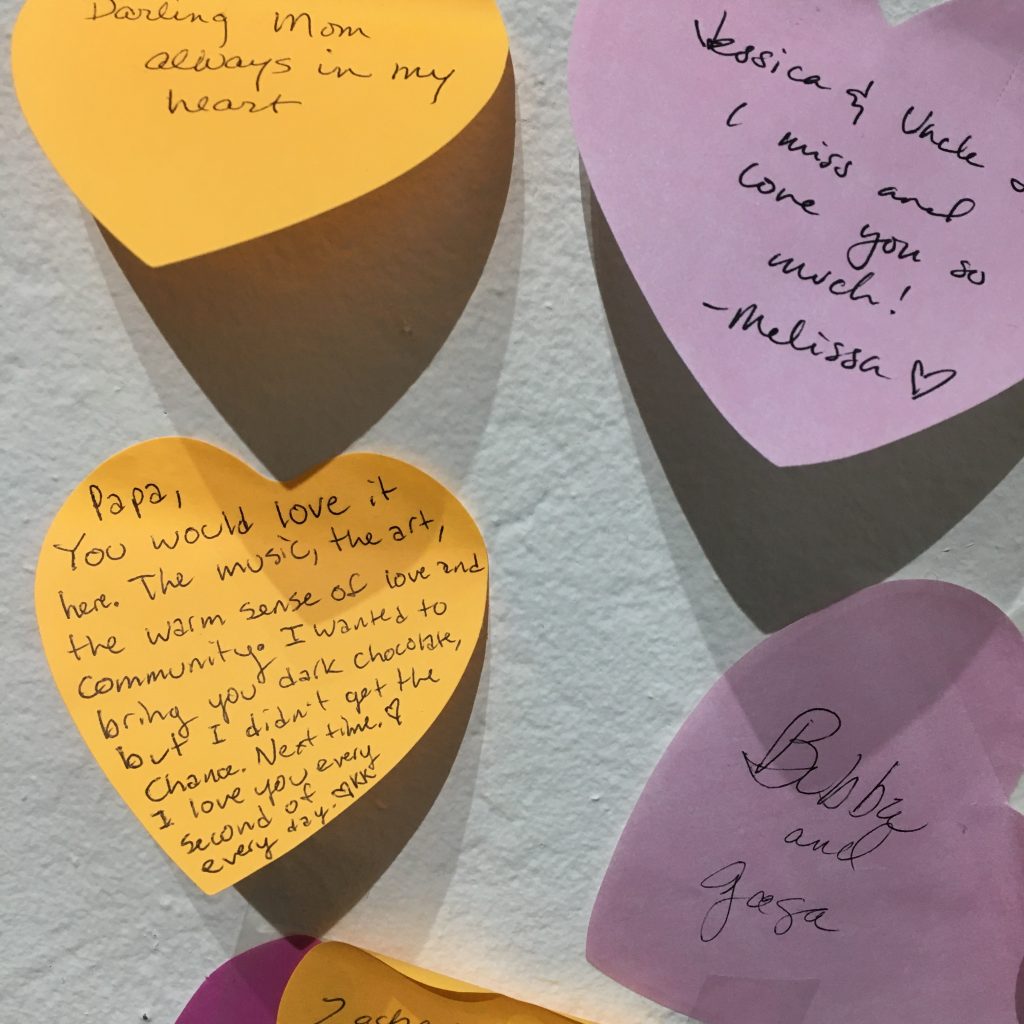 Darling Mom
always in my
heart
Jessica & Uncle
I miss and
love you so
much!
-Melissa ♡
Papa,
You would love it
here. The music, the art,
the warm sense of love and
community. I wanted to
bring you dark chocolate,
but I didn't get the
chance. Next time. ♡
I love you every
second of
every day. ♡KK
Bubba
and